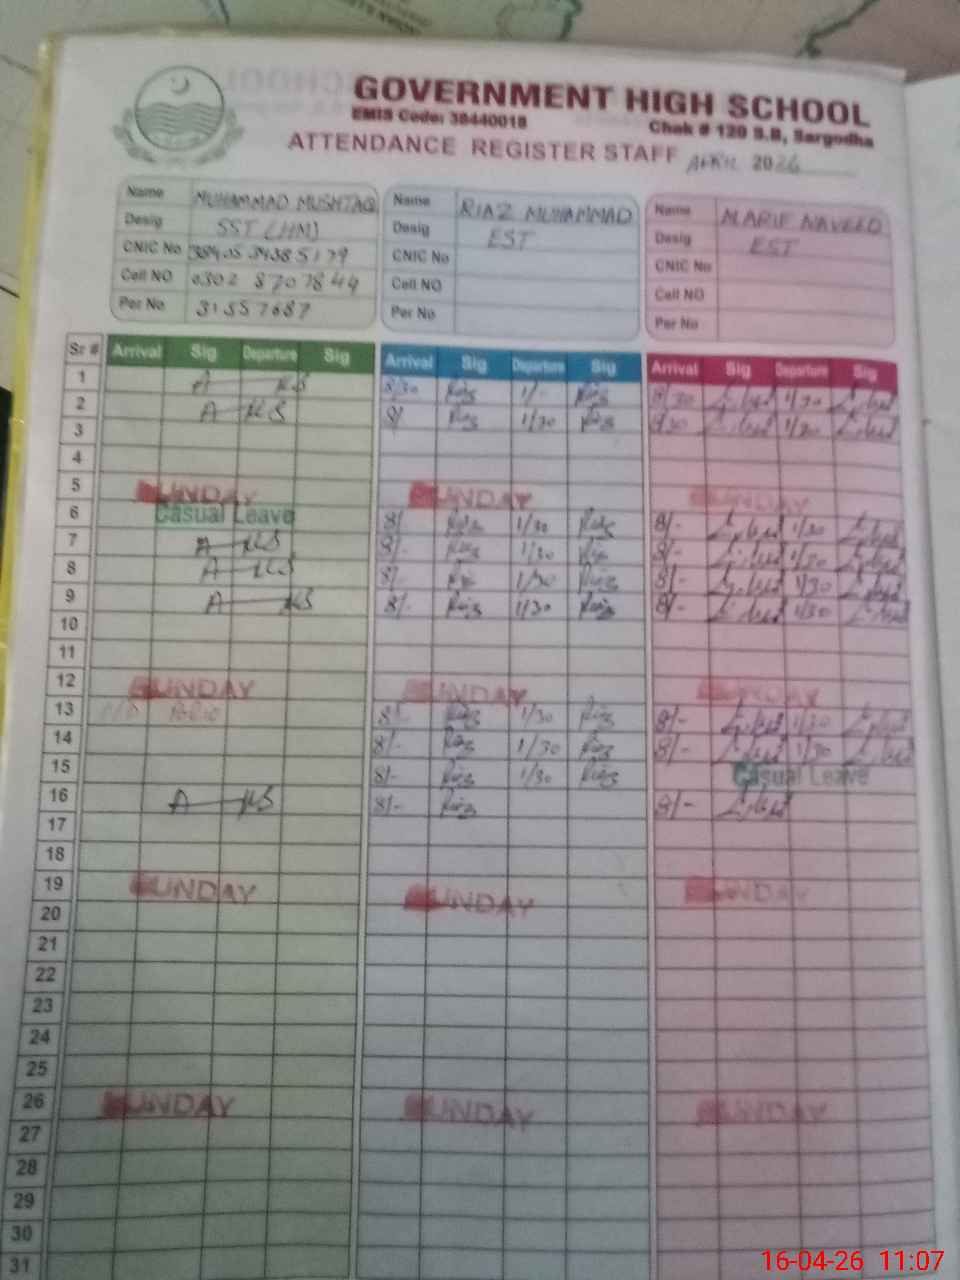 GOVERNMENT HIGH SCHOOL
EMIS Code: 38440018 Chak # 120 S.B, Sargodha
ATTENDANCE REGISTER STAFF APRIL 2026
Name MUHAMMAD MUSHTAQ
Desig SST (HM)
CNIC No
Cell NO 0302 8707844
Per No 31557687
Name RIAZ MUHAMMAD
Desig EST
CNIC No
Cell NO
Per No
Name M.ARIF NAVEED
Desig EST
CNIC No
Cell NO
Per No
Sr # Arrival Sig Departure Sig Arrival Sig Departure Sig Arrival Sig Departure Sig
1 A 8/30 Riaz 1/- Riaz 8/30 1/30
2 A 8/ Riaz 1/30 Riaz 8/30 1/30
3
4
5 SUNDAY SUNDAY SUNDAY
6 Casual Leave 8/- Riaz 1/30 Riaz 8/- 1/30
7 A 8/- Riaz 1/30 Riaz 8/- 1/30
8 A 8/- Riaz 1/30 Riaz 8/- 1/30
9 A 8/- Riaz 1/30 Riaz 8/- 1/30
10
11
12 SUNDAY SUNDAY SUNDAY
13 Polio 8/- Riaz 1/30 Riaz 8/- 1/30
14 8/- Riaz 1/30 Riaz 8/- 1/30
15 8/- Riaz 1/30 Riaz Casual Leave
16 A 8/- Riaz 8/-
17
18
19 SUNDAY SUNDAY SUNDAY
20
21
22
23
24
25
26 SUNDAY SUNDAY SUNDAY
27
28
29
30
31
16-04-26 11:07